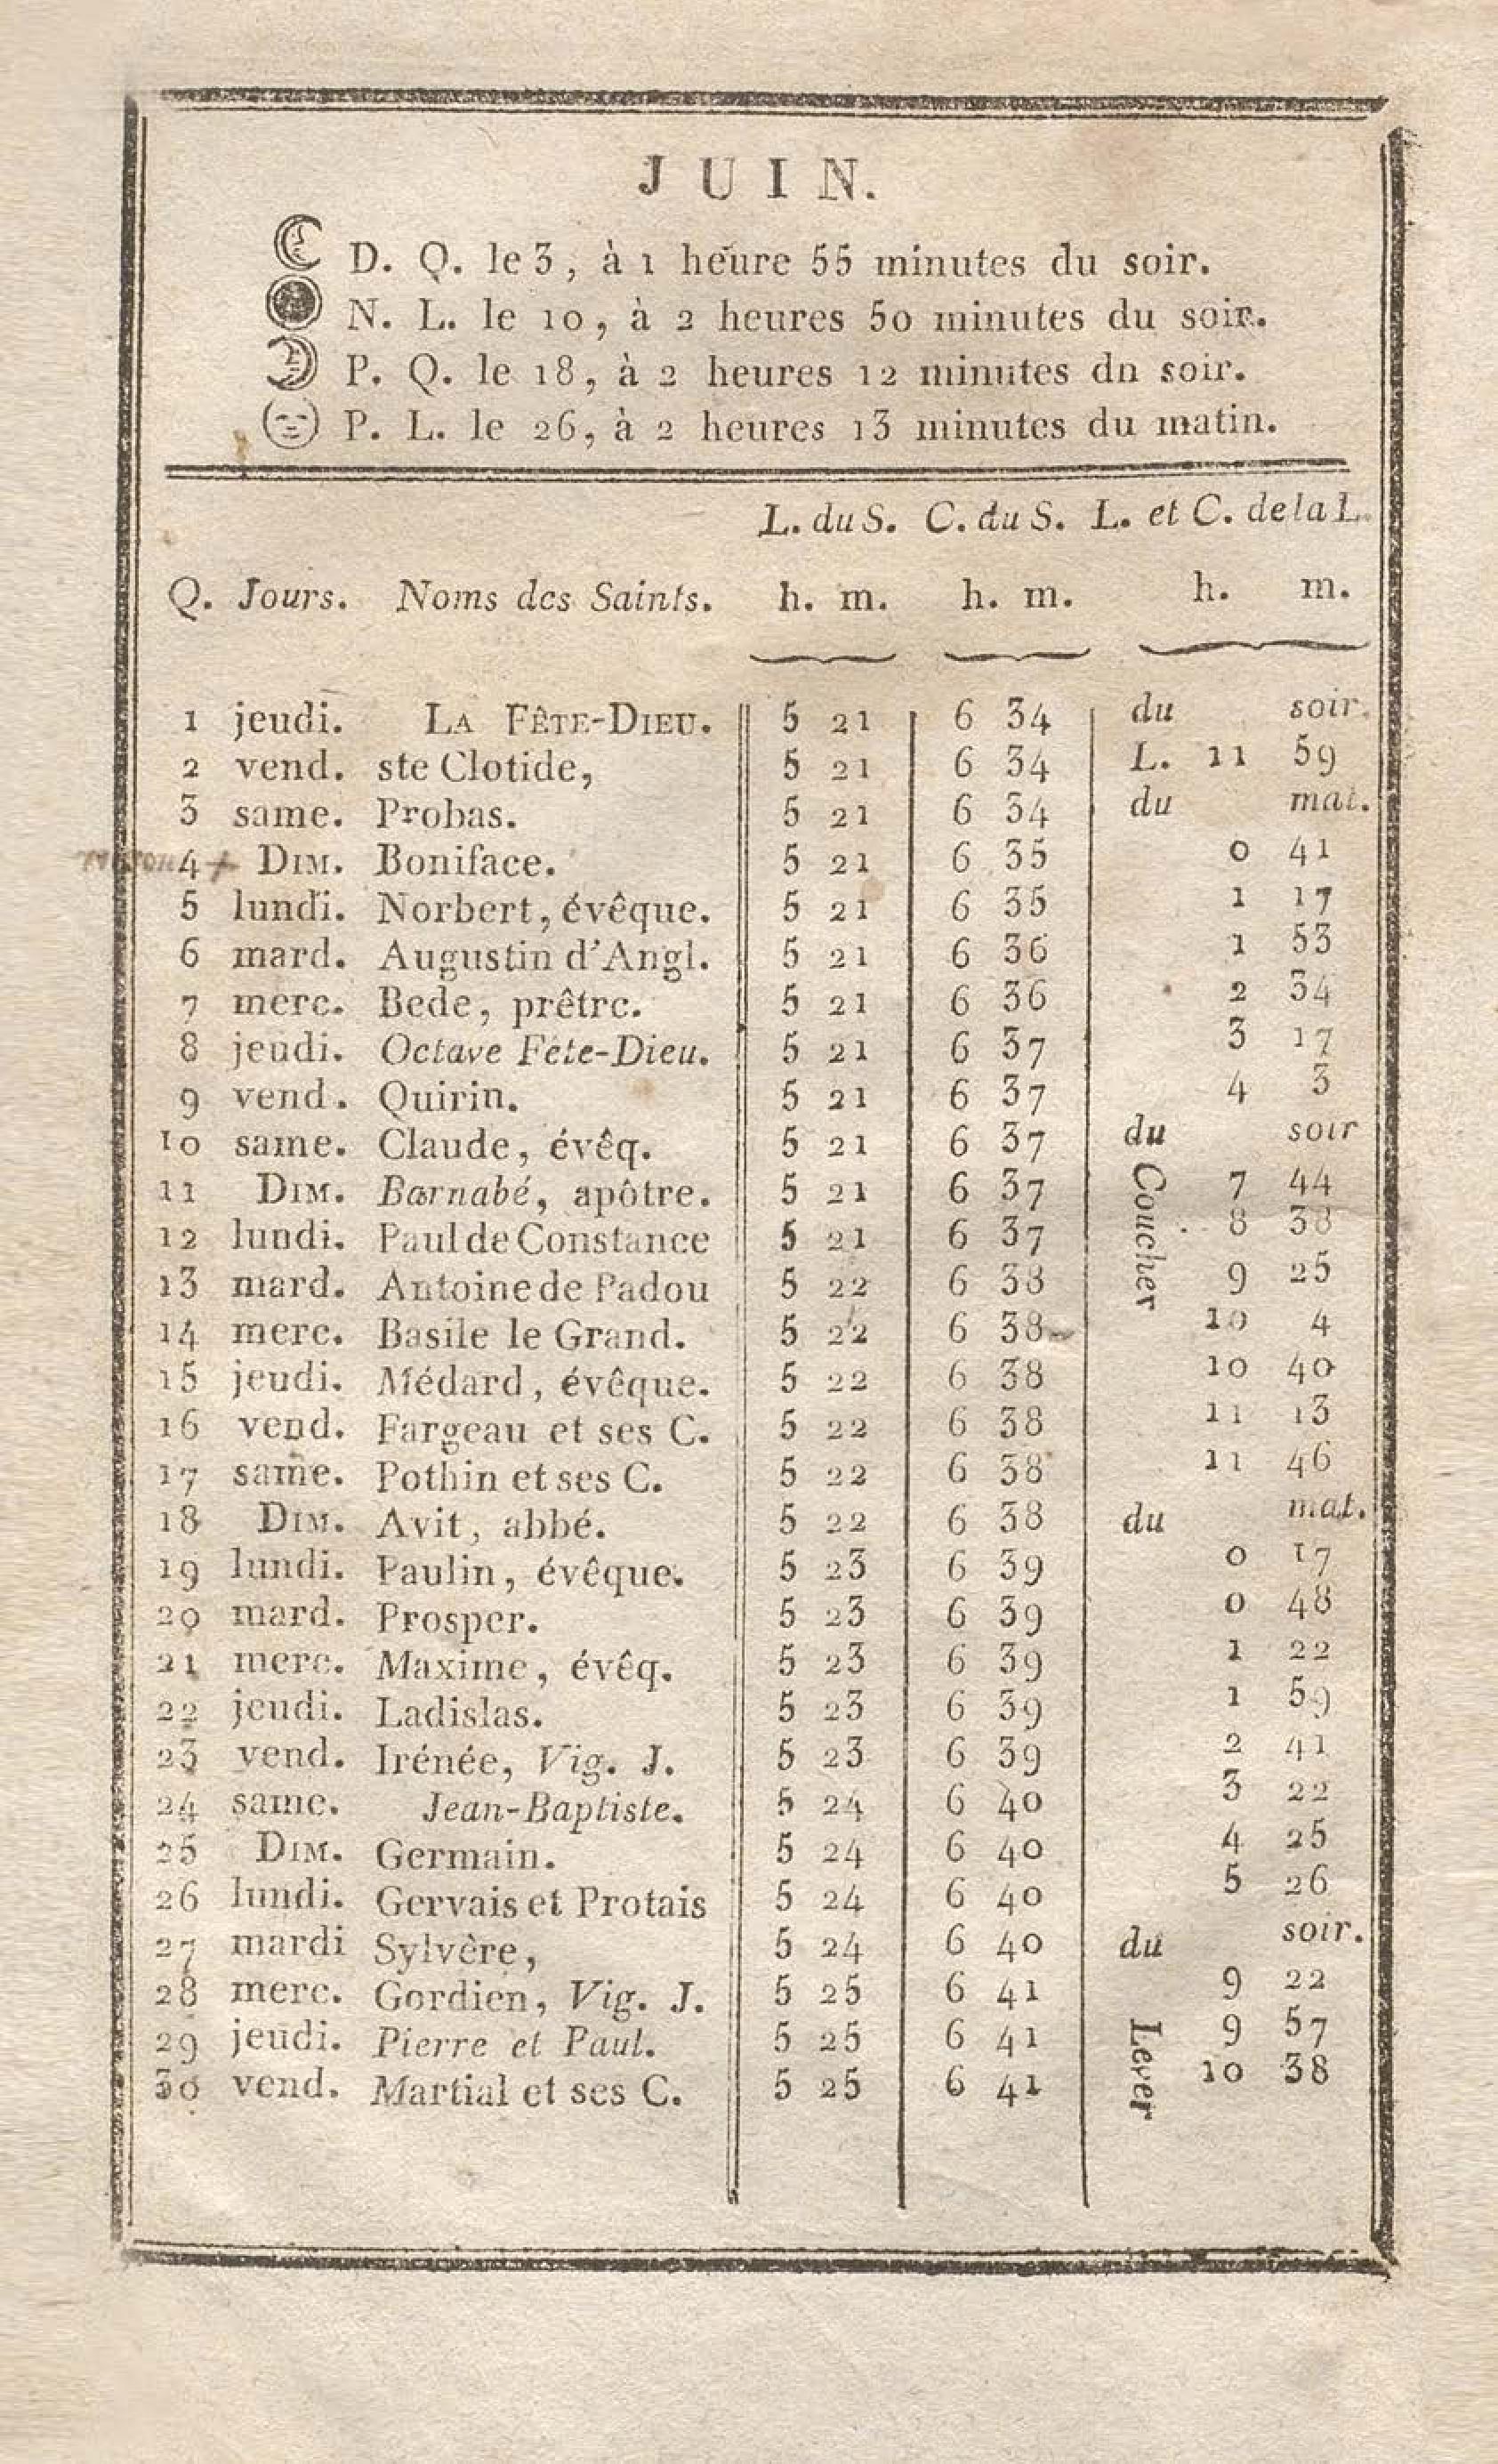 JUIN.
D. Q. le 3, à 1 heure 55 minutes du soir.
N. L. le 10, à 2 heures 50 minutes du soir.
P. Q. le 18, à 2 heures 12 minutes dn soir.
P. L. le 26, à 2 heures 13 minutes du matin.
L. du S. C. du S. L. et C. de la L.
Q. Jours. Noms des Saints. h. m. h. m. h. m.
1 jeudi. LA FÊTE-DIEU. 5 21 6 34 du soir.
2 vend. ste Clotide, 5 21 6 34 L. 11 59
3 same. Probas. 5 21 6 34 du mat.
4 DIM. Boniface. 5 21 6 35 0 41
5 lundi. Norbert, évêque. 5 21 6 35 1 17
6 mard. Augustin d'Angl. 5 21 6 36 1 53
7 merc. Bede, prêtre. 5 21 6 36 2 34
8 jeudi. Octave Fête-Dieu. 5 21 6 37 3 17
9 vend. Quirin. 5 21 6 37 4 3
10 same. Claude, évêq. 5 21 6 37 du soir
11 DIM. Barnabé, apôtre. 5 21 6 37 Coucher 7 44
12 lundi. Paul de Constance 5 21 6 37 8 38
13 mard. Antoine de Padou 5 22 6 38 9 25
14 merc. Basile le Grand. 5 22 6 38 10 4
15 jeudi. Médard, évêque. 5 22 6 38 10 40
16 vend. Fargeau et ses C. 5 22 6 38 11 13
17 same. Pothin et ses C. 5 22 6 38 11 46
18 DIM. Avit, abbé. 5 22 6 38 du mat.
19 lundi. Paulin, évêque. 5 23 6 39 0 17
20 mard. Prosper. 5 23 6 39 0 48
21 merc. Maxime, évêq. 5 23 6 39 1 22
22 jeudi. Ladislas. 5 23 6 39 1 59
23 vend. Irénée, Vig. J. 5 23 6 39 2 41
24 same. Jean-Baptiste. 5 24 6 40 3 22
25 DIM. Germain. 5 24 6 40 4 25
26 lundi. Gervais et Protais 5 24 6 40 5 26
27 mardi Sylvère, 5 24 6 40 du soir.
28 merc. Gordien, Vig. J. 5 25 6 41 9 22
29 jeudi. Pierre et Paul. 5 25 6 41 Lever 9 57
30 vend. Martial et ses C. 5 25 6 41 10 38